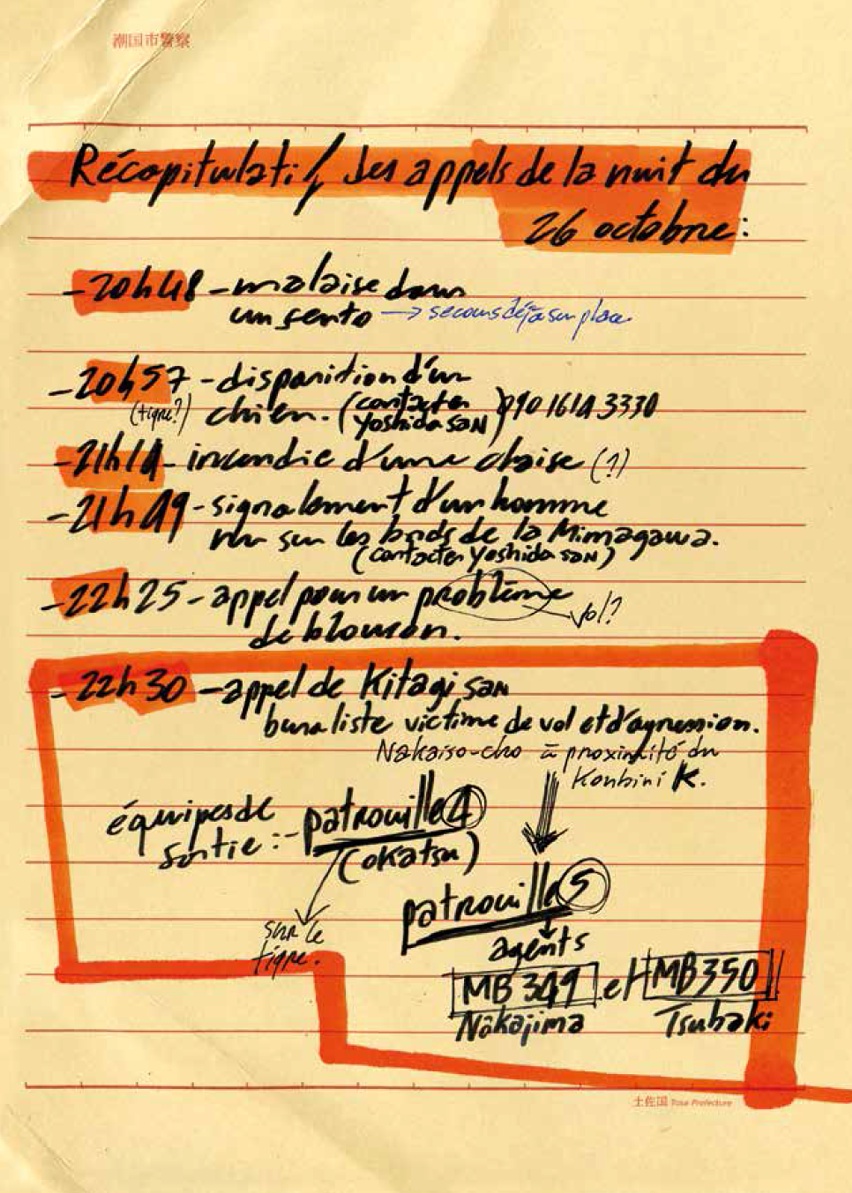 潮国市警察
Récapitulatif des appels de la nuit du
26 octobre :
- 20h48 - malaise dans
un sento → secours déjà sur place.
- 20h57 - disparition d'un
(tigre?) chien. (contacter Yoshida san) 090 1614 3330
- 21h14 - incendie d'une chaise (?)
- 21h49 - signalement d'un homme
nu sur les bords de la Mimagawa.
(contacter Yoshida san)
- 22h25 - appel pour un problème
de blouson. Vol?
- 22h30 - appel de Kitagi san
buraliste victime de vol et d'agression.
Nakaiso-cho à proximité du
Konbini K.
équipes de
sortie : - patrouille 4
(Okatsu)
sur le
tigre.
patrouille 5
agents
MB 349 et MB 350
Nakajima Tsubaki
土佐国 Tosa Prefecture